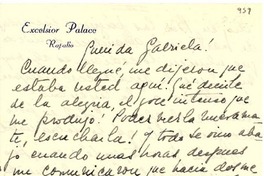 939
Excelsior Palace
Rapallo
Querida Gabriela!
Cuando llegué, me dijeron que
estaba usted aquí! Qué decirle
de la alegría, el goce intenso que
me produjo! Poder verla nuevamen-
te, escucharla! Y todo se vino aba-
jo cuando unas horas después
me comunicaron que hacía dos me